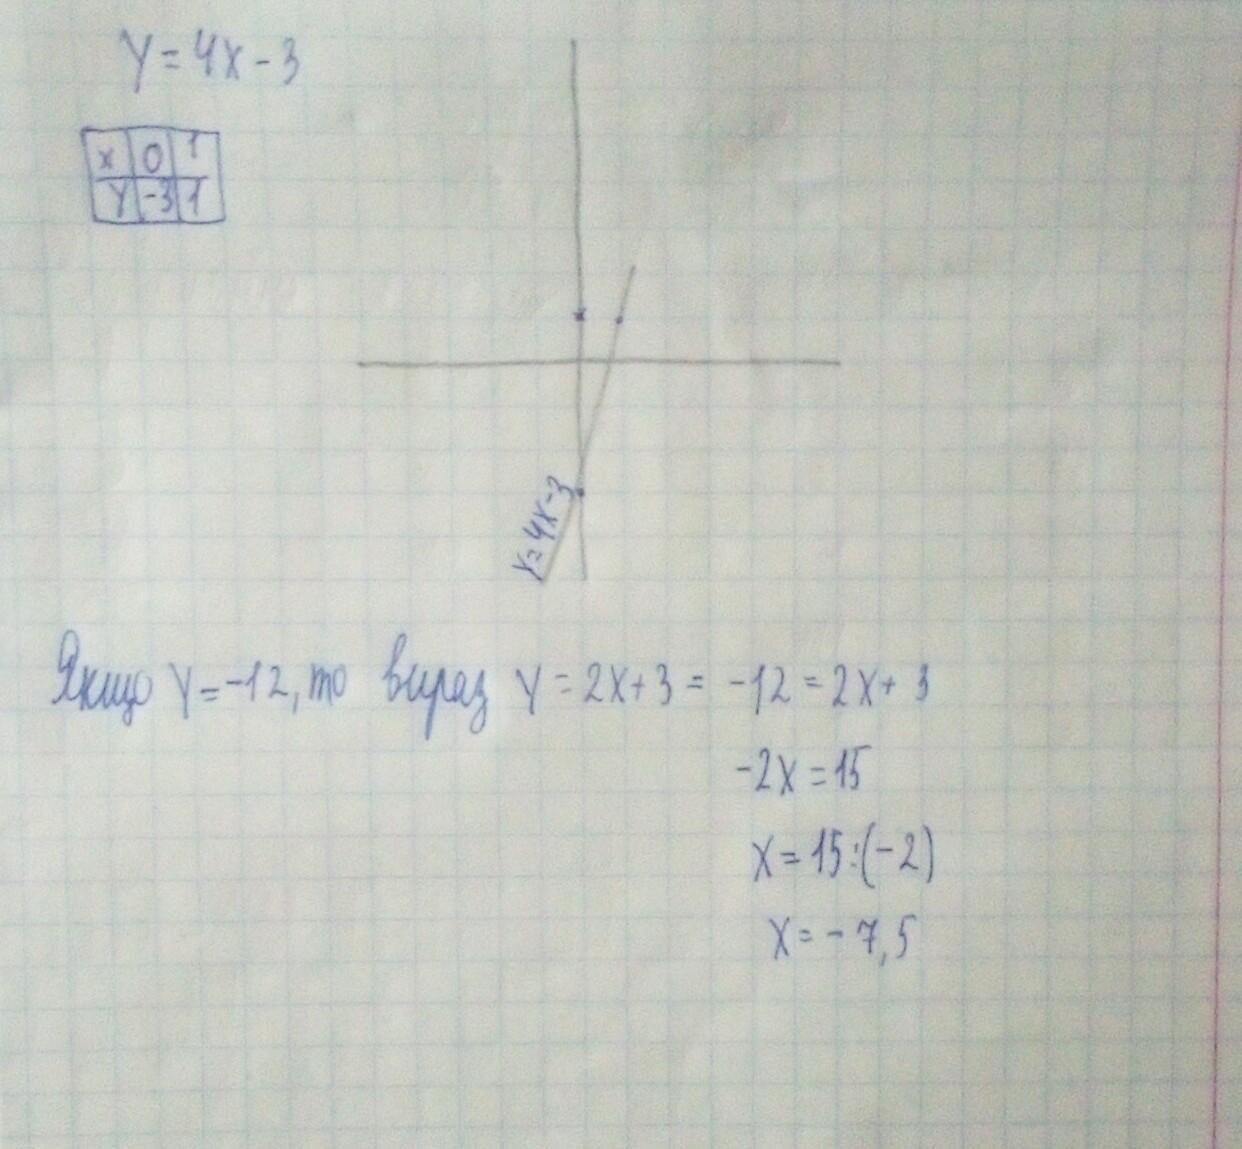 y = 4x - 3
x 0 1
y -3 1
y=4x-3
Якщо y=-12, то вираз y = 2x+3 = -12 = 2x+ 3
-2x = 15
x = 15:(-2)
x = - 7,5